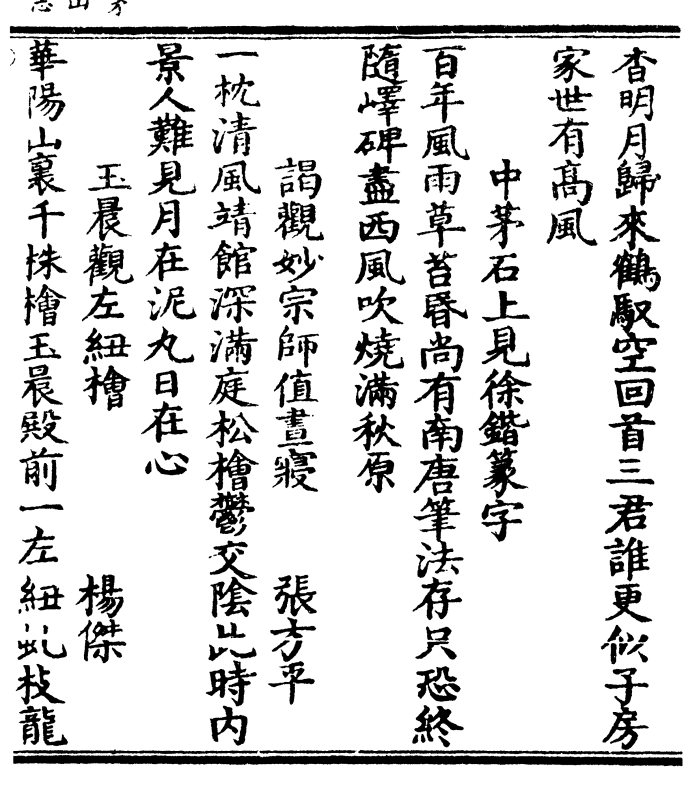 杳明月歸來鶴馭空回首三君誰更似子房
家世有髙風
中茅石上見徐鍇篆字
百年風雨草苔昬尚有南唐筆法存只恐終
隨嶧碑盡西風吹燒滿秋原
謁觀妙宗師值晝寢 張方平
一枕清風靖館深滿庭松檜鬱交陰此時内
景人難見月在泥丸日在心
玉晨觀左紐檜 楊傑
華陽山裏千株檜玉晨殿前一左紐虬枝龍